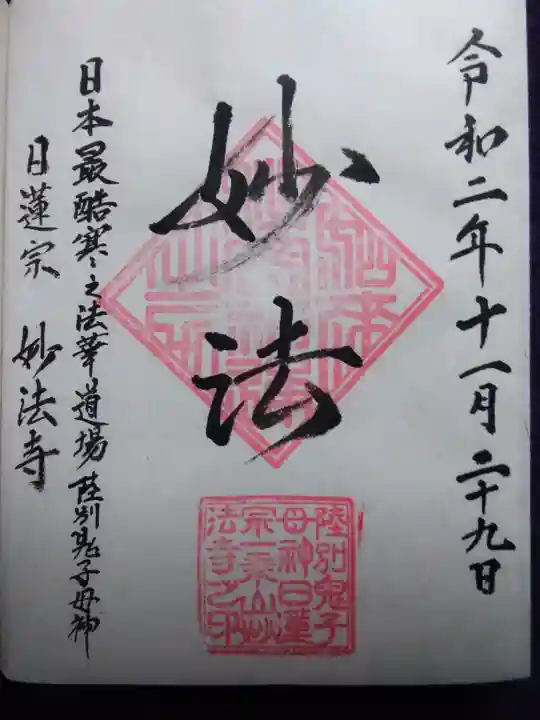 令和二年十一月二十九日
妙法
陸別鬼子
母神日蓮
宗一乗山妙
法寺之印
日本最酷寒之法華道場 陸別鬼子母神
日蓮宗 妙法寺